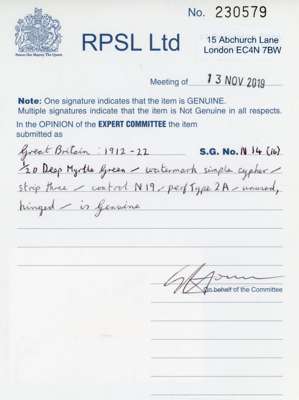 No. 230579
RPSL Ltd
15 Abchurch Lane
London EC4N 7BW
Meeting of 13 NOV 2019
Note: One signature indicates that the item is GENUINE.
Multiple signatures indicate that the item is Not Genuine in all respects.
In the OPINION of the EXPERT COMMITTEE the item
submitted as
Great Britain: 1912-22 S.G. No. N14 (16)
Deep Myrtle Green / watermark simple cypher /
strip three / control N19 / perf Type 2A / unused,
hinged / is Genuine
On behalf of the Committee